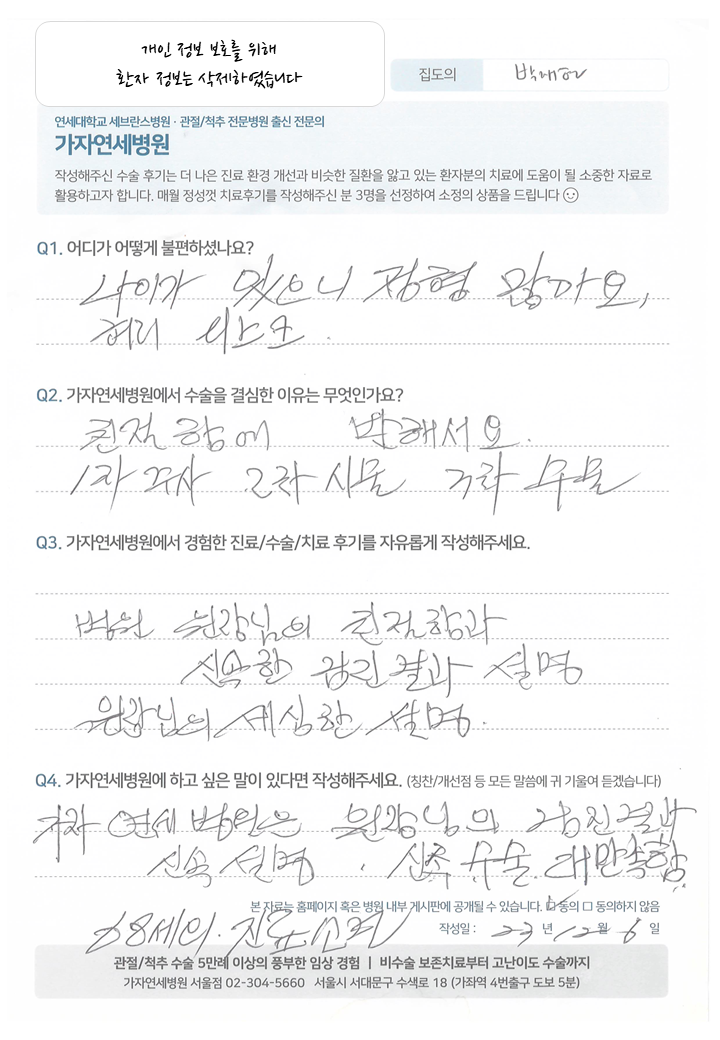 개인 정보 보호를 위해
환자 정보는 삭제하였습니다
집도의 박대현
연세대학교 세브란스병원 · 관절/척추 전문병원 출신 전문의
가자연세병원
작성해주신 수술 후기는 더 나은 진료 환경 개선과 비슷한 질환을 앓고 있는 환자분의 치료에 도움이 될 소중한 자료로
활용하고자 합니다. 매월 정성껏 치료후기를 작성해주신 분 3명을 선정하여 소정의 상품을 드립니다
Q1. 어디가 어떻게 불편하셨나요?
나이가 있으니 정형 많아요,
허리 디스크.
Q2. 가자연세병원에서 수술을 결심한 이유는 무엇인가요?
친절함에 반해서요.
1차 주사 2차 시술 3차 수술
Q3. 가자연세병원에서 경험한 진료/수술/치료 후기를 자유롭게 작성해주세요.
병원 원장님의 친절함과
신속한 검진결과 설명
원장님의 세심한 설명.
Q4. 가자연세병원에 하고 싶은 말이 있다면 작성해주세요. (칭찬/개선점 등 모든 말씀에 귀 기울여 듣겠습니다)
가자 연세병원은 원장님의 검진결과
신속 설명. 수술. 대만족함
본 자료는 홈페이지 혹은 병원 내부 게시판에 공개될 수 있습니다. ☑ 동의 □ 동의하지 않음
68세의. 진료소견
작성일 : 23 년 12 월 6 일
관절/척추 수술 5만례 이상의 풍부한 임상 경험 | 비수술 보존치료부터 고난이도 수술까지
가자연세병원 서울점 02-304-5660 서울시 서대문구 수색로 18 (가좌역 4번출구 도보 5분)